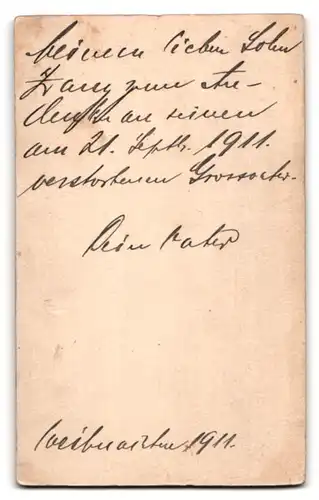 Meinem lieben Sohn
Franz zum An-
denken an seinen
am 21. Septb. 1911.
verstorbenen Grossvater.
Dein Vater
Weihnachten 1911.